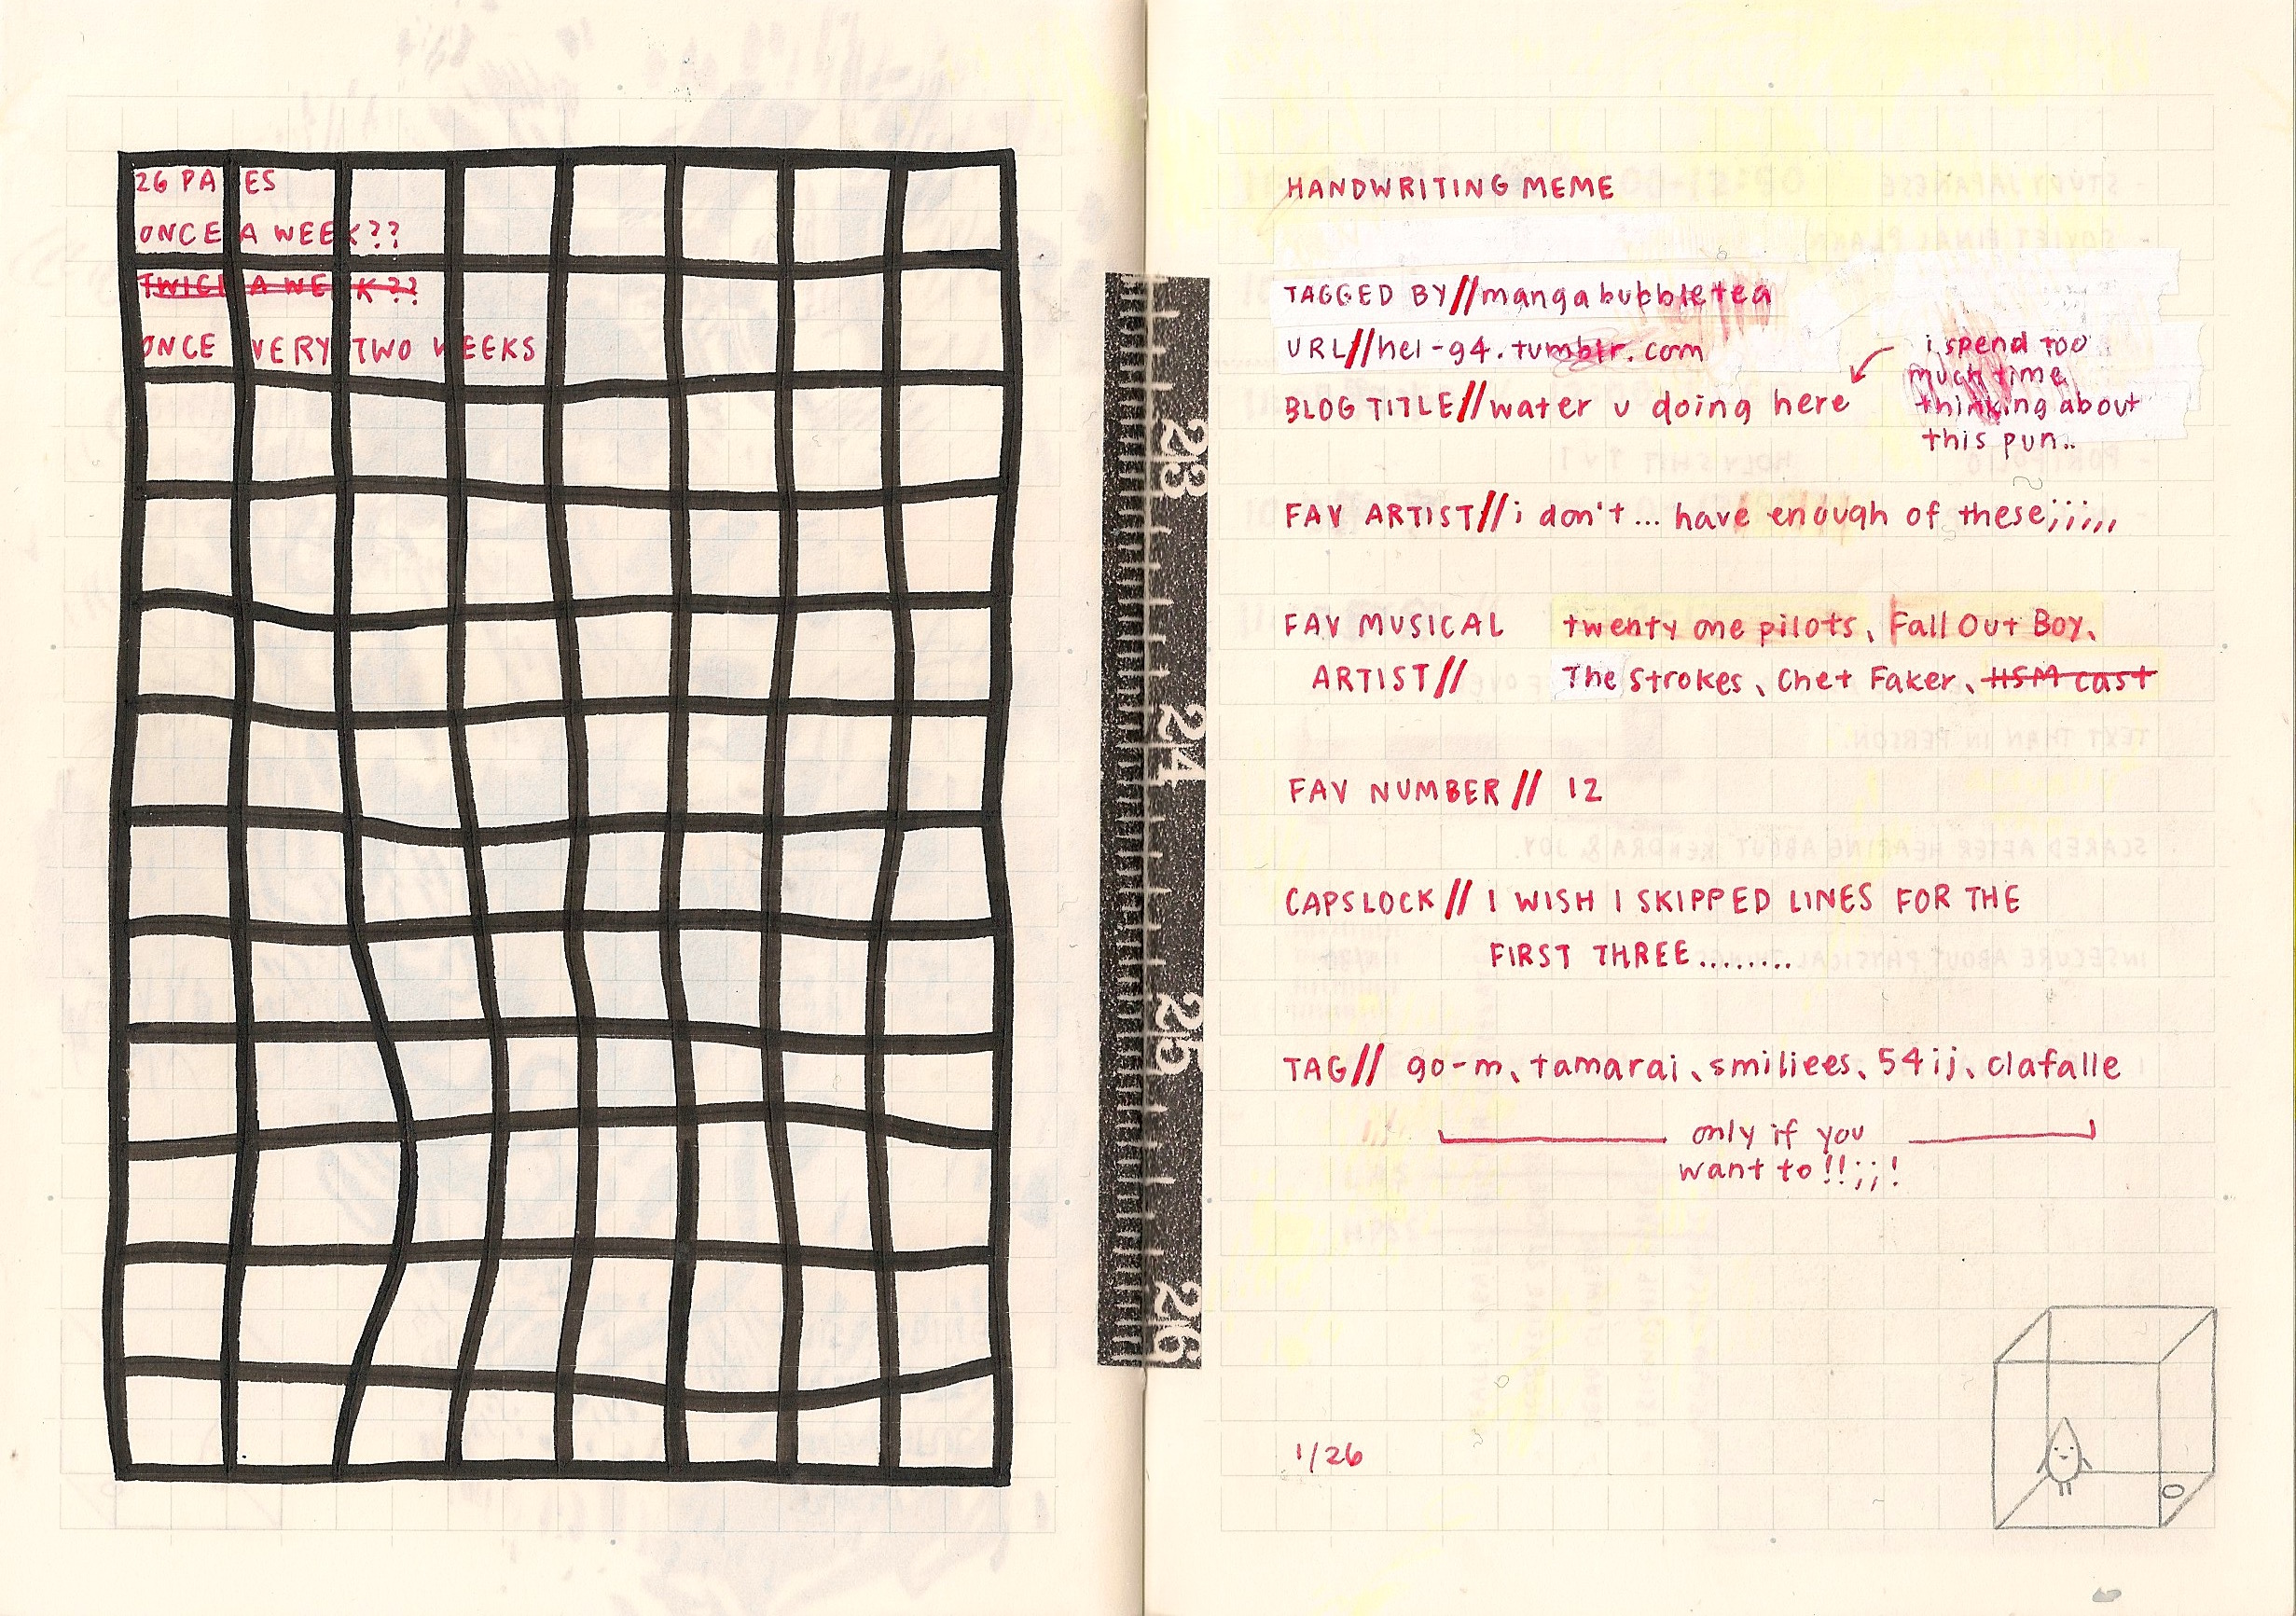 26 PA ES
ONCE A WEEK??
TWICE A WEEK??
ONCE VERY TWO WEEKS
23
24
25
26
HANDWRITING MEME
TAGGED BY//mangabubbletea
URL//hel-94.tumblr.com
BLOG TITLE//water u doing here
i spend too
much time
thinking about
this pun..
FAV ARTIST//i don't... have enough of these;;;,,,
FAV MUSICAL twenty one pilots, Fall Out Boy,
ARTIST// The Strokes, Chet Faker, HSM cast
FAV NUMBER// 12
CAPSLOCK// I WISH I SKIPPED LINES FOR THE
FIRST THREE........
TAG// go-m, tamarai, smiliees, 54ij, clafalle
only if you
want to!!;;!
1/26